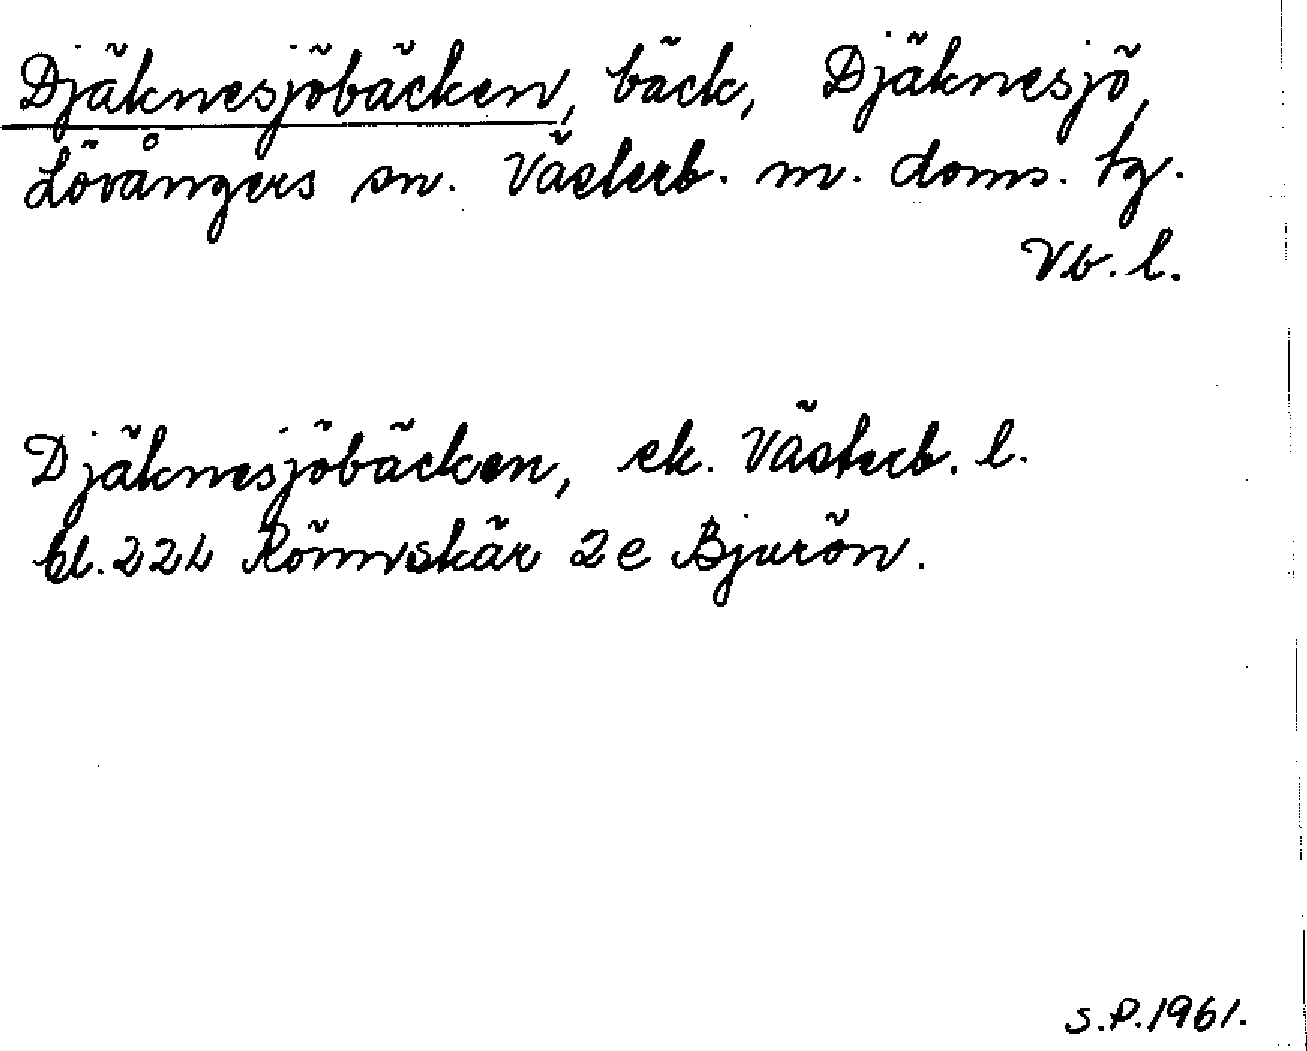 Djäknesjöbäcken, bäck, Djäknesjö,
Lövångers sn. Västerb. m. doms. tg.
Vb. l.
Djäknesjöbäcken, ek. Västerb. l.
bl. 22L Rönnskär 2e Bjurön.
S.P. 1961.